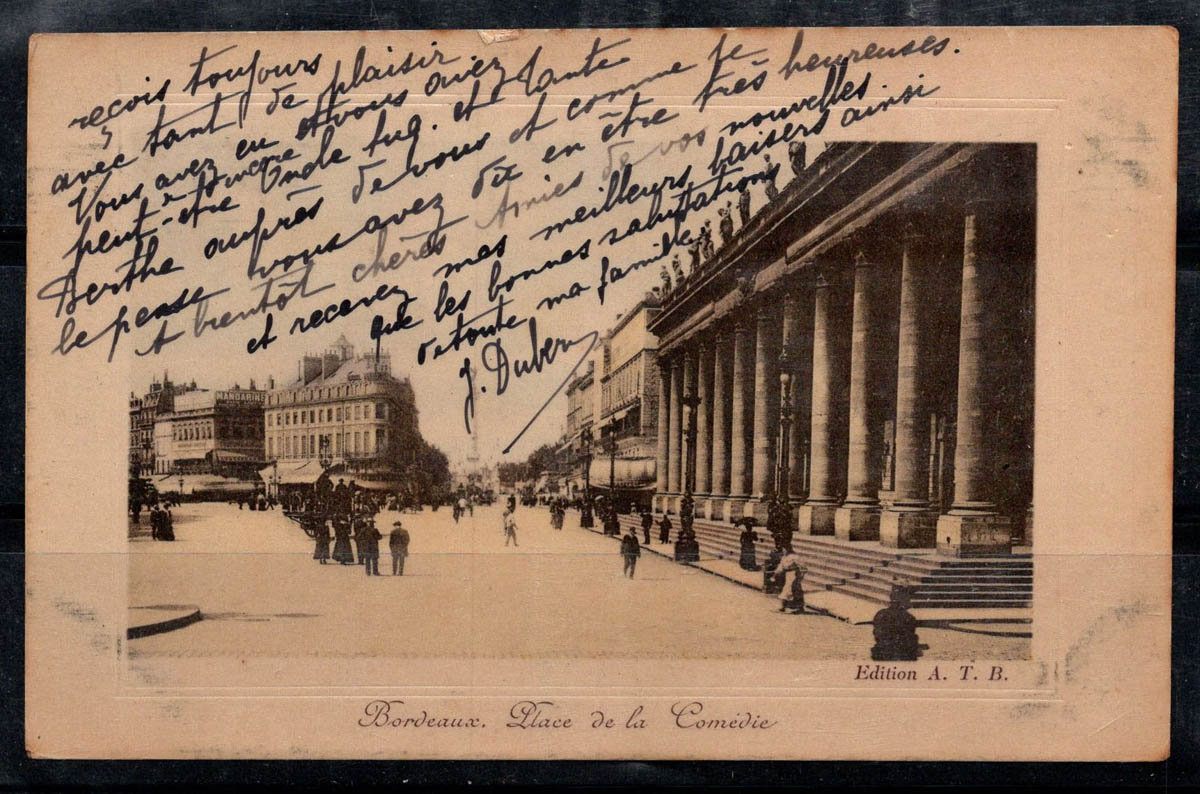 reçois toujours
avec tant de plaisir
Vous avez eu et vous avez
peut-être encore Oncle Eug. et Tante
Berthe auprès de vous et comme je
le pense vous avez dû en être très heureuses.
A bientôt chères Amies de vos nouvelles
et recevez mes meilleurs baisers ainsi
que les bonnes salutations
de toute ma famille.
J. Duber
MANDARINE
Edition A. T. B.
Bordeaux. Place de la Comédie